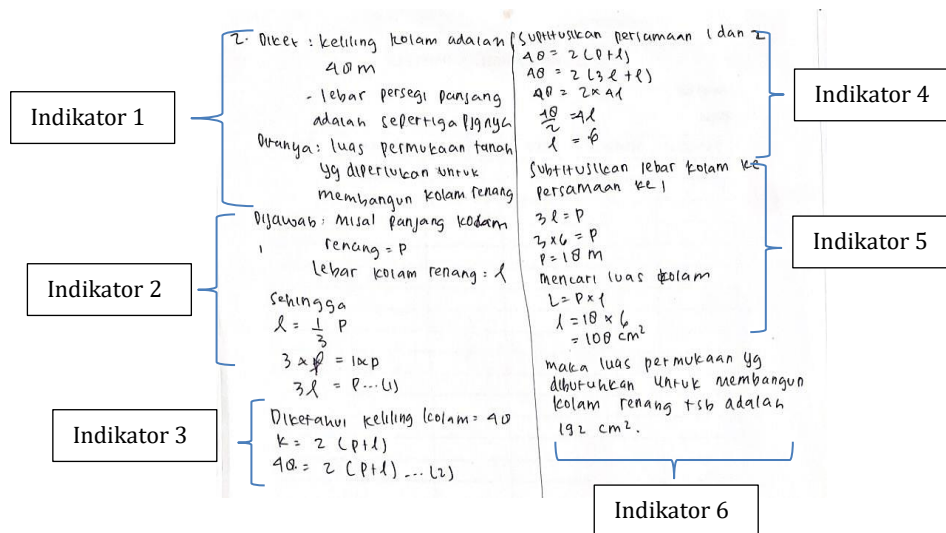 Indikator 1
2. Diket : keliling kolam adalah
48 m
- lebar persegi panjang
adalah sepertiga pjgnya
Ditanya : luas permukaan tanah
yg diperlukan untuk
membangun kolam renang
Indikator 2
Dijawab : Misal panjang kolam
renang = p
lebar kolam renang : l
sehingga
l = 1/3 p
3 x l = 1xp
3l = p...(1)
Indikator 3
Diketahui keliling kolam = 48
k = 2 (p+l)
48 = 2 (p+l) ...(2)
Subtitusikan persamaan 1 dan 2
48 = 2 (p+l)
48 = 2 (3l + l)
48 = 2 x 4l
48/2 = 4l
l = 6
Indikator 4
Subtitusikan lebar kolam ke
persamaan ke 1
3l = p
3 x 6 = p
p = 18 m
mencari luas kolam
L = p x l
l = 18 x 6
= 108 cm²
Indikator 5
maka luas permukaan yg
dibutuhkan untuk membangun
kolam renang tsb adalah
192 cm².
Indikator 6